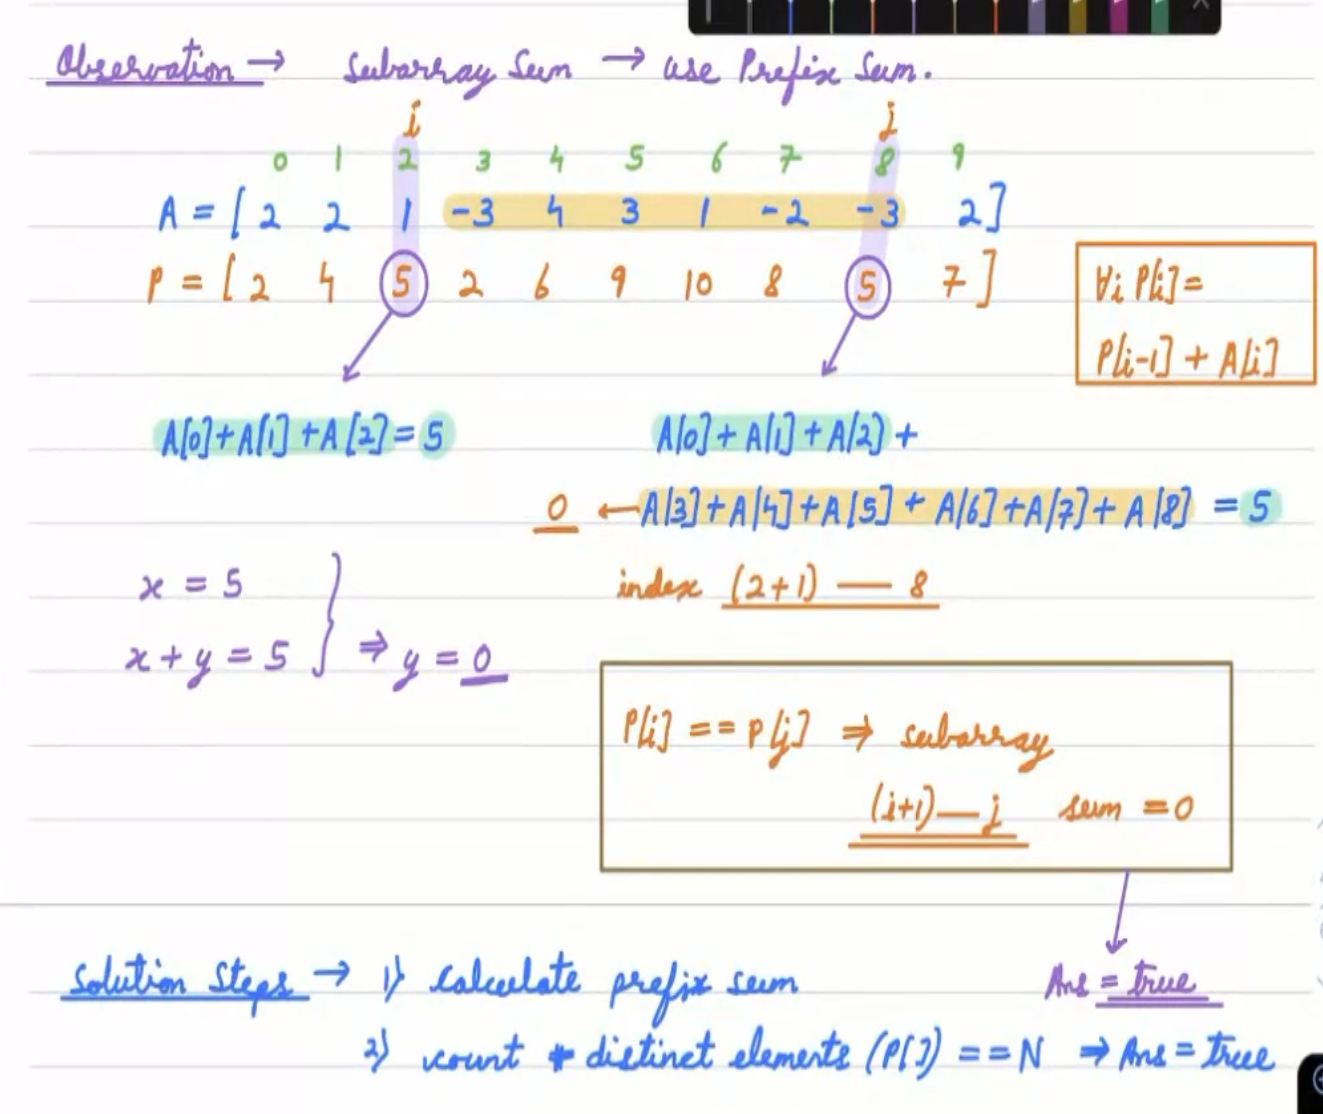 Observation → Subarray Sum → use Prefix Sum.
i j
0 1 2 3 4 5 6 7 8 9
A = [ 2 2 1 -3 4 3 1 -2 -3 2 ]
P = [ 2 4 5 2 6 9 10 8 5 7 ]
∀i P[i] =
P[i-1] + A[i]
A[0]+A[1]+A[2] = 5
A[0]+A[1]+A[2] +
0 ← A[3]+A[4]+A[5]+A[6]+A[7]+A[8] = 5
index (2+1) — 8
x = 5
x + y = 5 } ⇒ y = 0
P[i] == P[j] ⇒ subarray
(i+1) — j sum = 0
Ans = true
Solution Steps → 1) Calculate prefix sum
2) count # distinct elements (P[]) == N ⇒ Ans = true